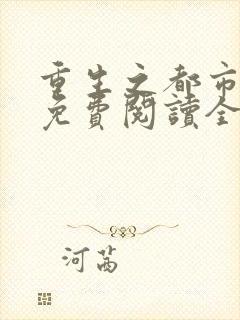 重生之都市
免費閱讀全
河茜